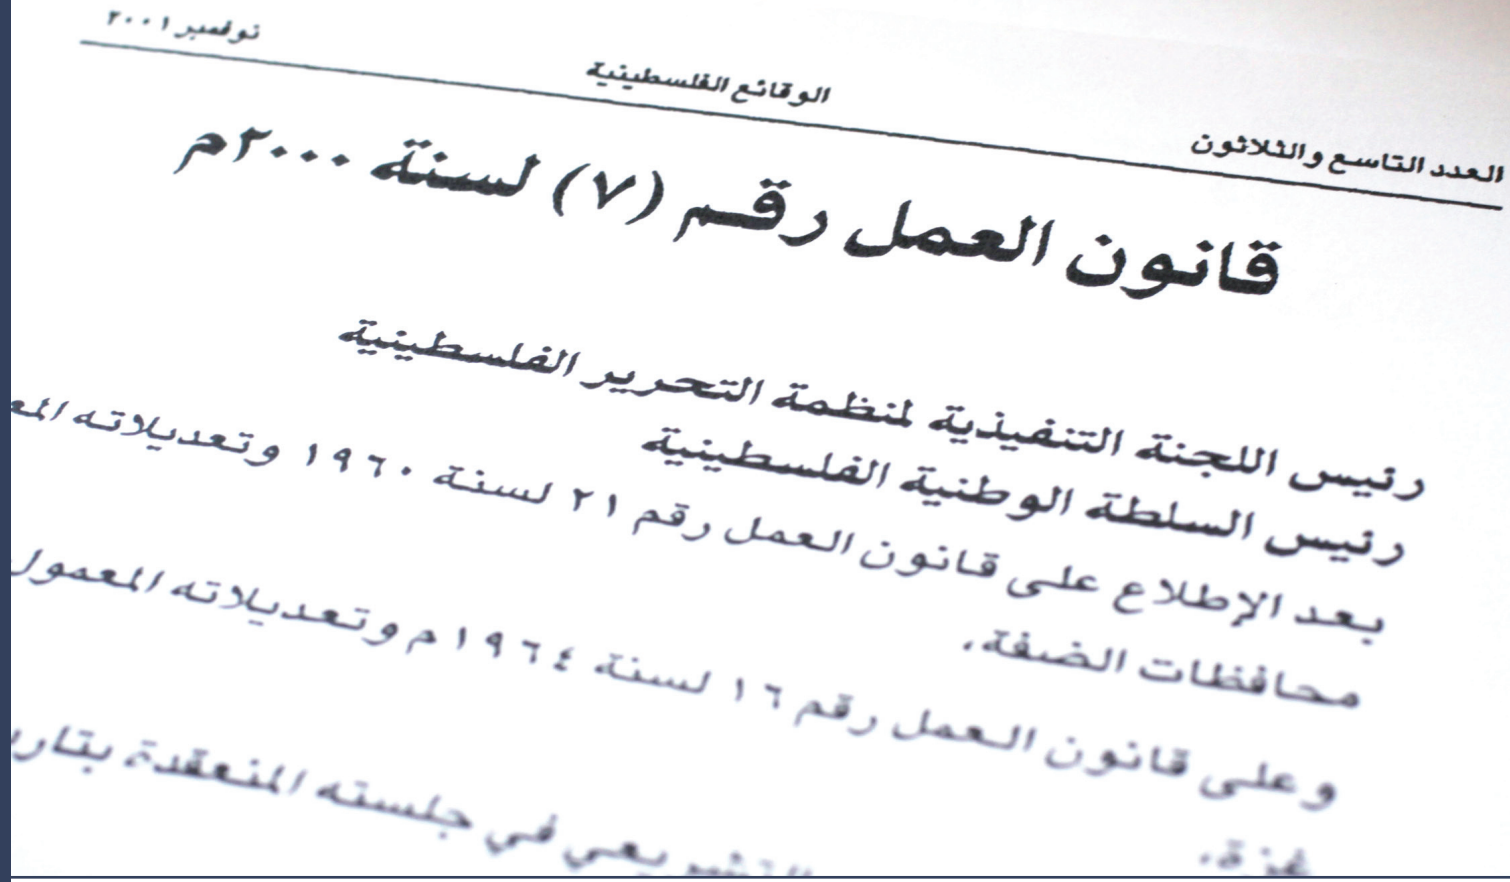 العدد التاسع والثلاثون الوقائع الفلسطينية نوفمبر ٢٠٠١
قانون العمل رقم (٧) لسنة ٢٠٠٠م
رئيس اللجنة التنفيذية لمنظمة التحرير الفلسطينية
رئيس السلطة الوطنية الفلسطينية
بعد الإطلاع على قانون العمل رقم ٢١ لسنة ١٩٦٠ وتعديلاته المع
محافظات الضفة،
وعلى قانون العمل رقم ١٦ لسنة ١٩٦٤م وتعديلاته المعمول
غزة،
التشريعي في جلسته المنعقدة بتار